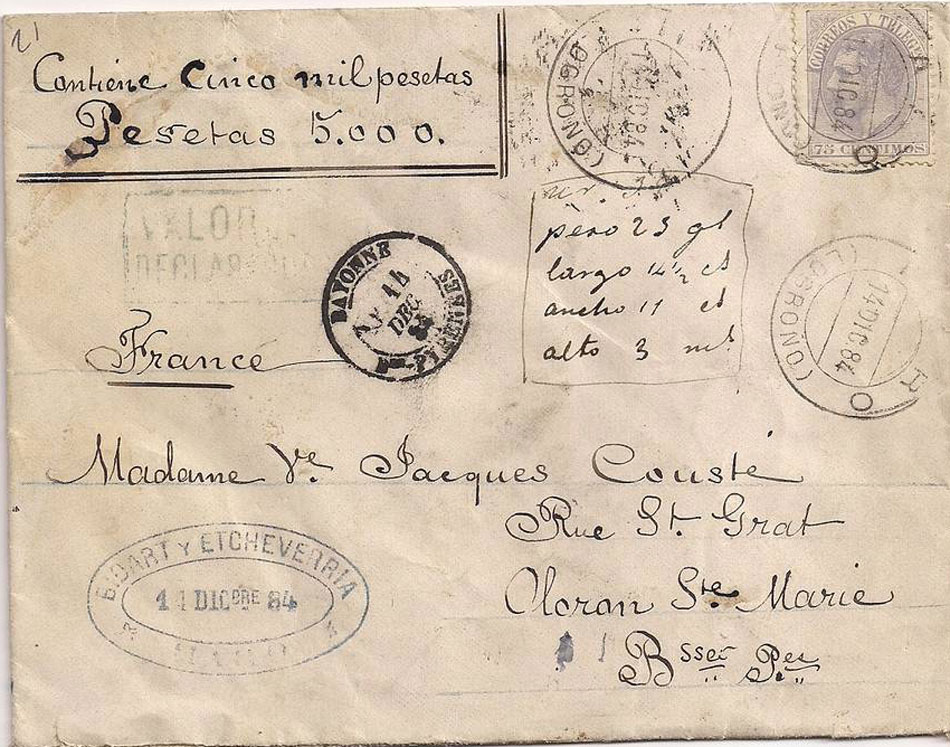 21
Contiene Cinco mil pesetas
Pesetas 5.000.
14 DIC 84
(LOGROÑO)
CORREOS Y TELEGFS
12 DIC. 84
75 CENTIMOS
VALOR
DECLARADO
peso 23 gs
largo 14 1/2 cs
ancho 11 cs
alto 3 ms
BAYONNE
14
DEC
84
Bses-PYRENEES
14 DIC. 84
(LOGROÑO)
France
Madame Ve. Jacques Cousté
Rue St. Grat
Oloron Ste. Marie
Bsses Pes
BIDART Y ETCHEVERRIA
11 DICBRE 84